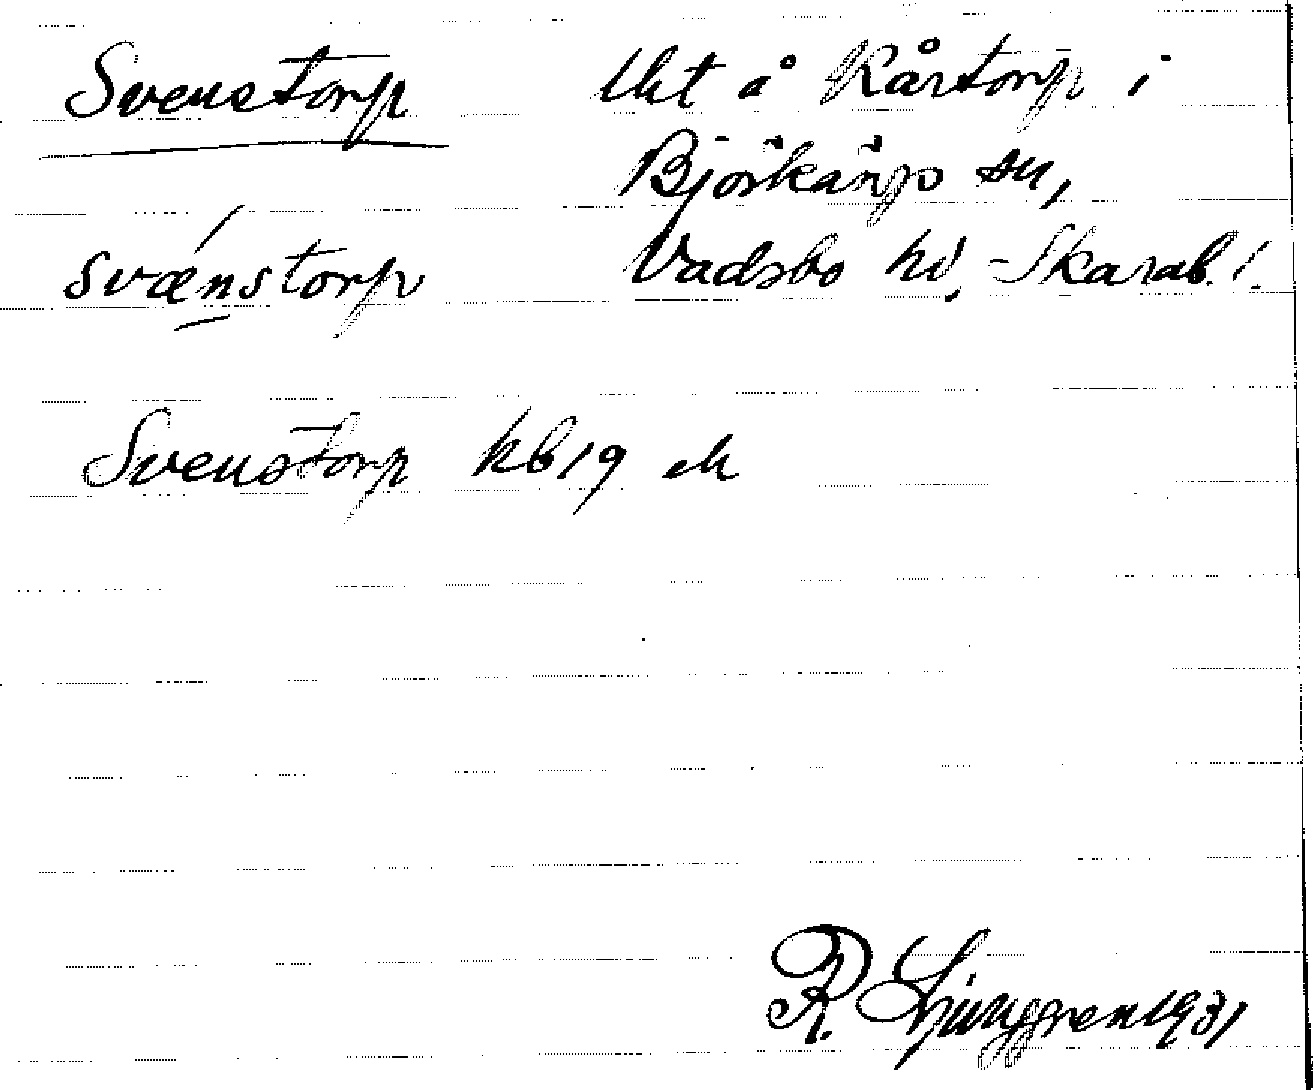 Svenstorp
lht å Kårtorp i
Björkängs sn,
Vadsbo hd, Skarab. l.
svænstorp
Svenstorp kb 19 eh
R. Ljunggren 1931